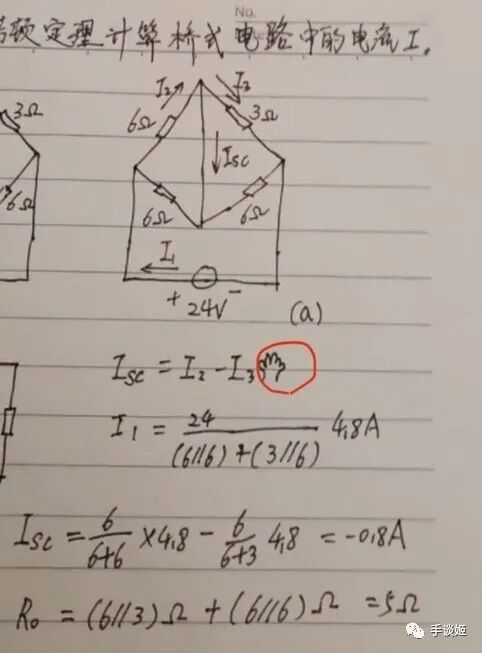 No.
顿定理计算桥式电路中的电流I.
I₂ I₃
3Ω 6Ω 3Ω
Isc
6Ω 6Ω 6Ω
I₁
+ 24V -
(a)
Isc = I₂ - I₃
I₁ = 24/((6//6)+(3//6)) 4.8A
Isc = 6/(6+6) ×4.8 - 6/(6+3) 4.8 = -0.8A
R₀ = (6//3)Ω + (6//6)Ω = 5Ω
手谈姬